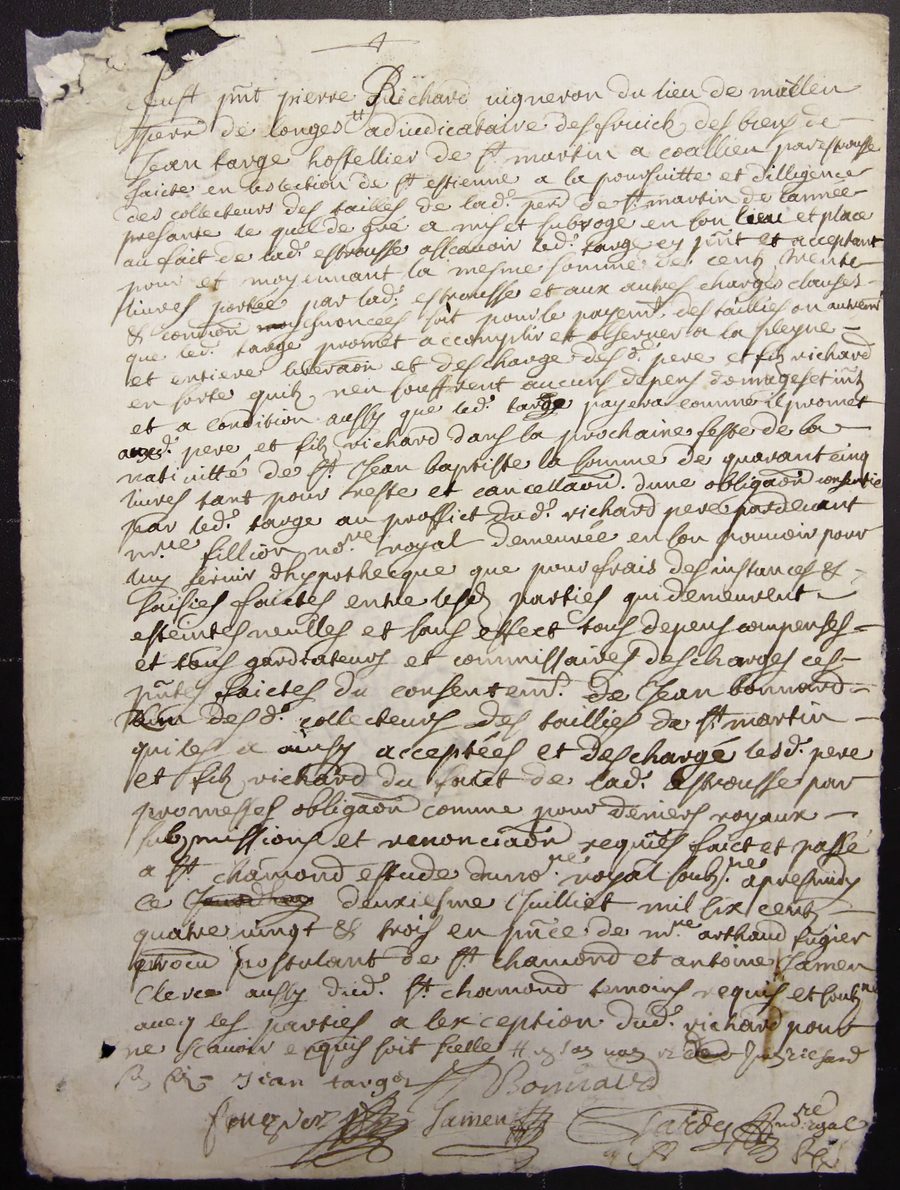 +
fust pnt pierre Richard vigneron du lieu de
de longes adiudicataire des fruictz des biens de
Jean targe hostellier de St martin a coallieu par estrousse
faicte en leslection de St estienne a la poursuitte et dilligence
des collecteurs des tailles de lade de St martin de lannee
presante le quel de gré a mis et subrogé en son lieu et place
au fait de lade estrousse asscauoir led. targe cy pnt et acceptant
pour et moyennant la mesme somme de cent trente
liures portée par lade estrousse et aux autres charges clauses
& condion enoncées soit pour le payemt des taillies ou autremt
que led. targe promet accomplir et obseruer a la pleyne
et entiere liberaon et descharge desd. pere et filz richard
en sorte quilz nen souffrent aucuns depens domages et intz
et a condition aussy que led. targe payera comme il promet
auxd. pere et filz richard dans la prochaine feste de la
natiuitté de St Jean baptiste la somme de quarant cinq
liures tant pour reste et cancellaon dune obligaon consentie
par led. targe au proffict dud. richard pere pardeuant
mre fillion nore royal demeurée en son pouuoir pour
luy seruir dhypothecque que pour frais des instances &
saisies faictes entre lesd parties qui demeurent
esteintes nulles et sans effect tous depens compensés
et tous gardiateurs et commissaires deschargés ces
pntes faictes du consentemt de Jean bonnard
lun desd. collecteurs des taillies de St martin
qui les a ainsy acceptées et deschargé lesd. pere
et filz richard du faict de lad. estrousse par
promesses obligaon comme pour deniers royaux
submissions et renonciaon requises faict et passé
a St chamond estude du nore royal soubzné apresmidy
ce deuxiesme Juilliet mil six centz
quatre vingt & trois en pnce de mre arthaud fugier
postulant de St chamond et antoine Jamen
clerc aussy dud. St chamond temoins requis et soubznés
auec les parties a lexception dud. richard pour
ne scauoir enquis soit scelle
Jean targe Bonnard
Jamen Tardy nore royal